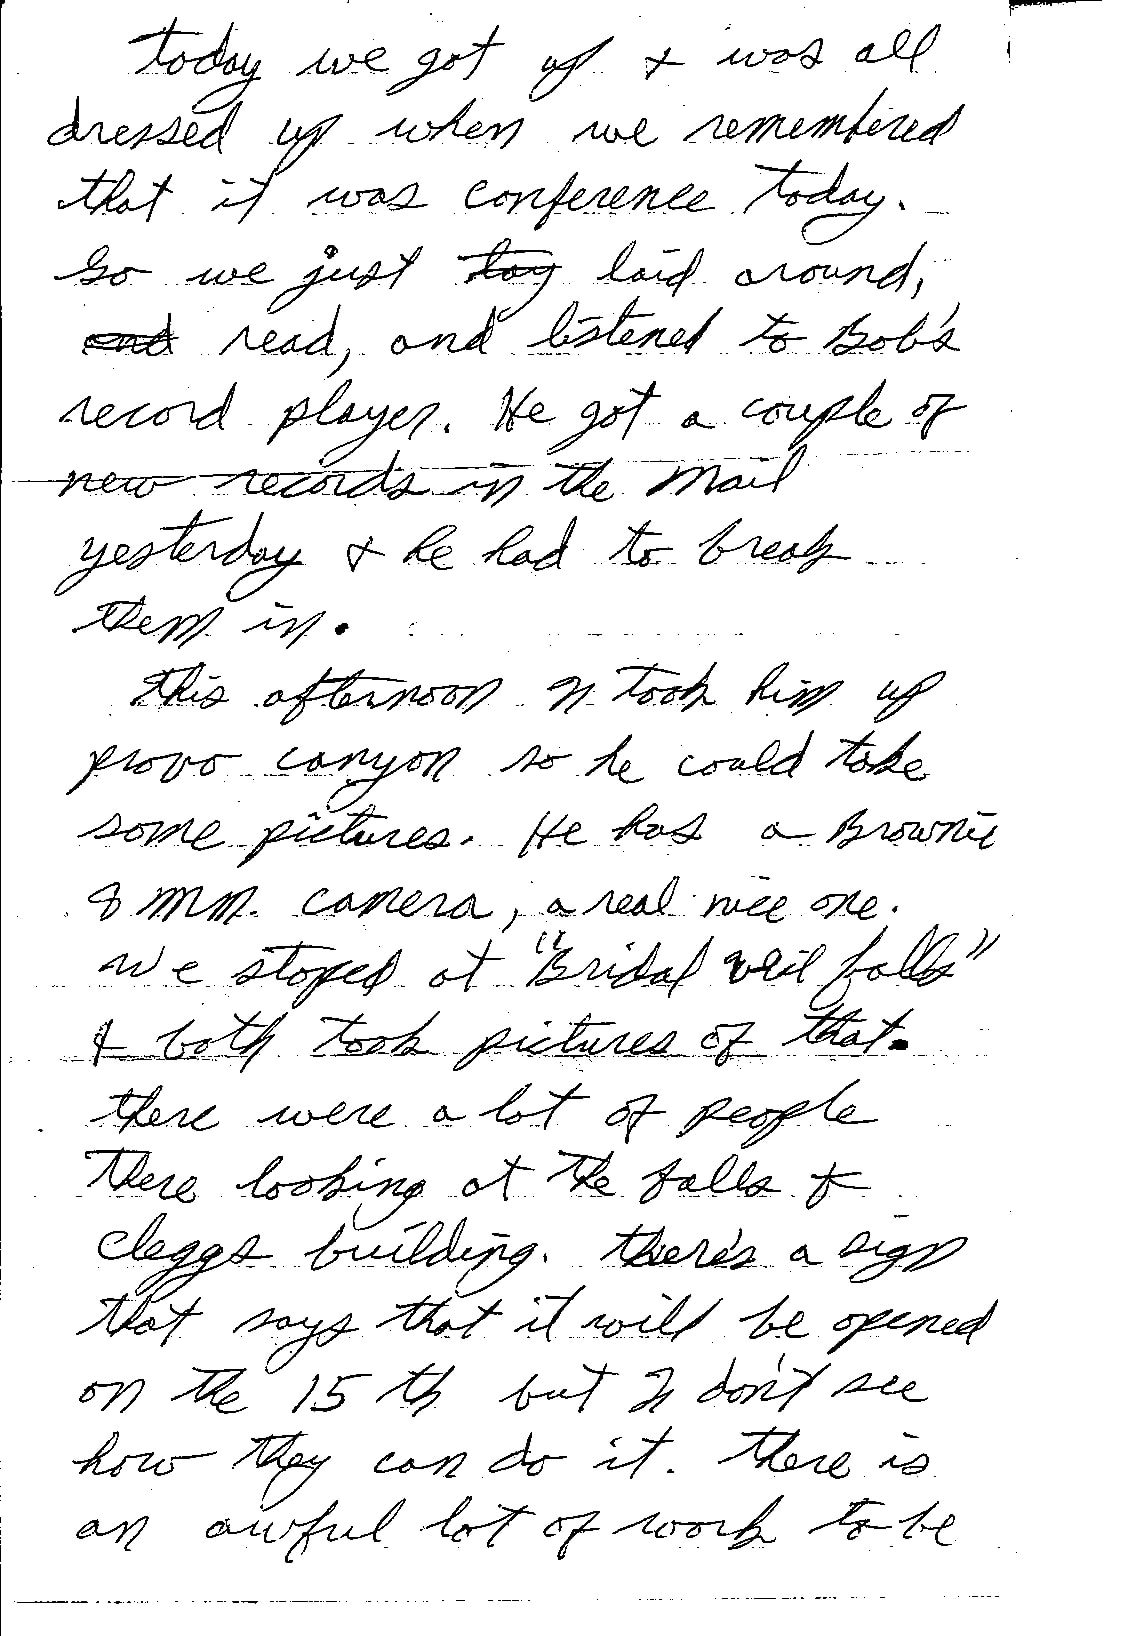 today we got up & was all
dressed up when we remembered
that it was conference today.
So we just lay laid around,
and read, and listened to Bob's
record player. He got a couple of
new records in the mail
yesterday & he had to break
them in.
This afternoon I took him up
provo canyon so he could take
some pictures. He has a Brownie
8 mm. camera, a real nice one.
we stoped at "Bridal veil falls"
& both took pictures of that.
there were a lot of people
there looking at the falls &
cleggs building. there's a sign
that says that it will be opened
on the 15 th but I don't see
how they can do it. there is
an awful lot of work to be